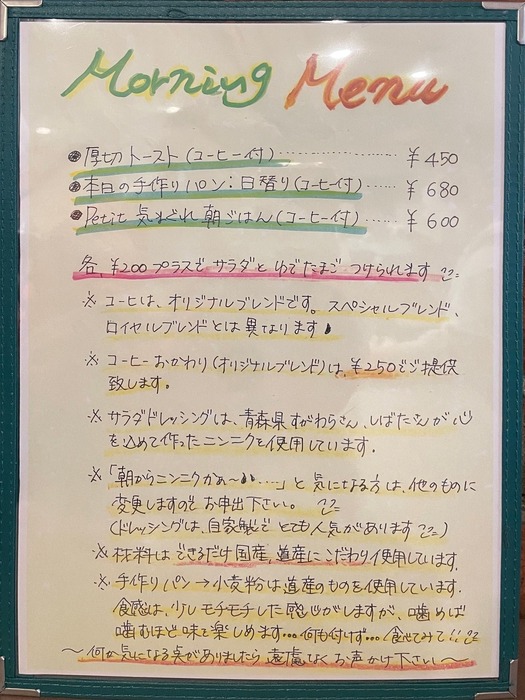 Morning Menu
●厚切トースト(コーヒー付)………… ¥450
●本日の手作りパン:日替り(コーヒー付)…… ¥680
●Petit 気まぐれ朝ごはん(コーヒー付)…… ¥600
各、¥200プラスで サラダと ゆでたまご つけられます
※ コーヒーは、オリジナルブレンドです。スペシャルブレンド、
ロイヤルブレンドとは 異なります
※ コーヒーおかわり(オリジナルブレンド)は、¥250でご提供
致します。
※ サラダドレッシングは、青森県すがわらさん、しばたさんが心
を込めて作ったニンニクを使用しています。
※「朝からニンニクかぁ~……」と 気になる方は、他のものに
変更しますので お申出下さい。
(ドレッシングは、自家製で とても人気があります)
※ 材料は できるだけ国産、道産にこだわり使用しています。
※ 手作りパン→小麦粉は道産のものを使用しています。
食感は、少しモチモチした感じがしますが、噛めば
噛むほど味を楽しめます…何も付けず…食べてみて!!
~何か気になる点がありましたら 遠慮なくお声かけ下さい~